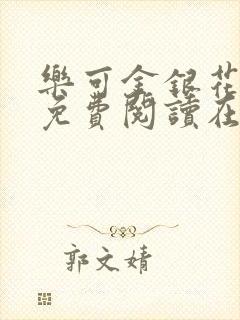 樂可金銀花
免費閱讀在
郭文婧